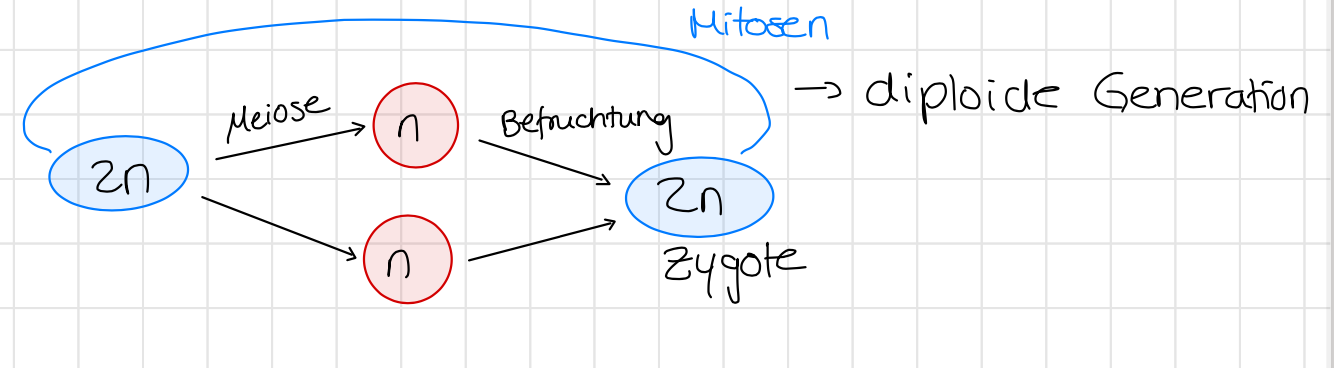 Mitosen
→ diploide Generation
Meiose
n
Befruchtung
2n
2n
n
Zygote